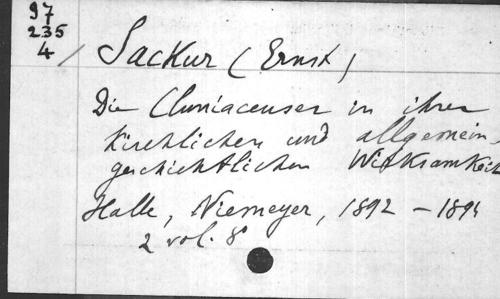 97
235
4
Sackur (Ernst)
Die Cluniacenser in ihrer
kirchlichen und allgemein-
geschichtlichen Wirksamkeit
Halle, Niemeyer, 1892 - 1894
2 vol. 8°